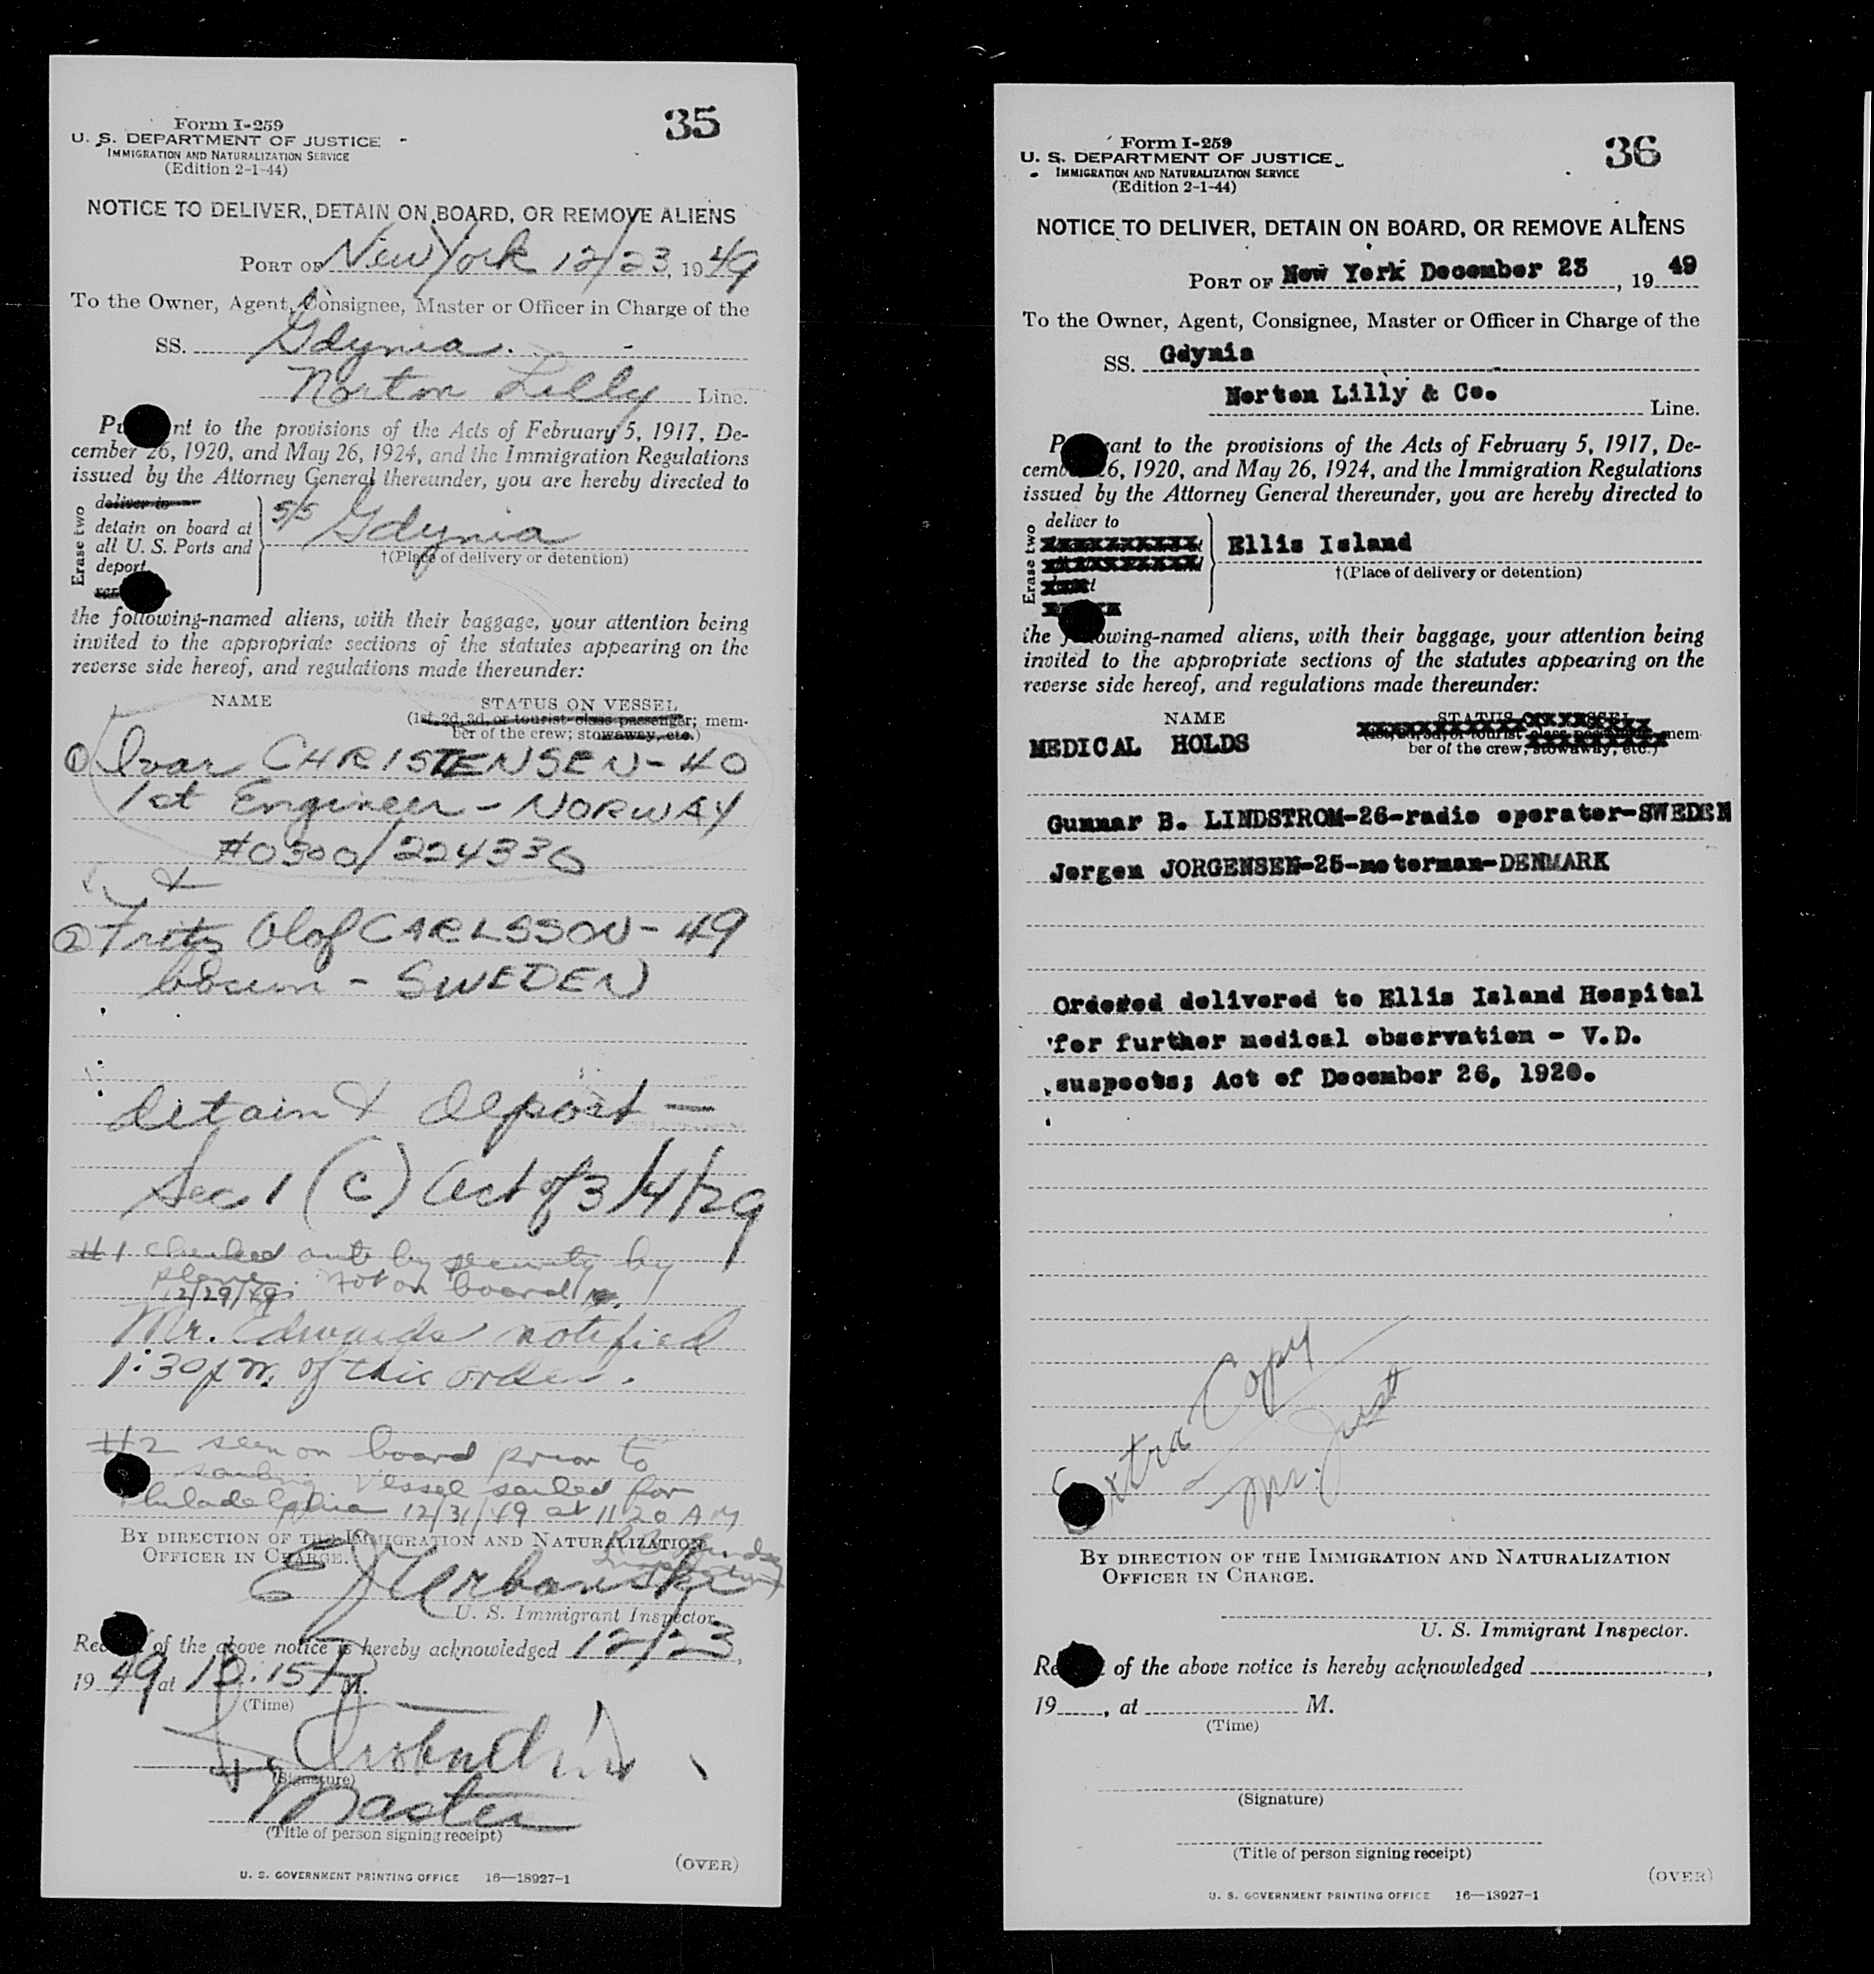 35
Form I-259
U. S. DEPARTMENT OF JUSTICE
IMMIGRATION AND NATURALIZATION SERVICE
(Edition 2-1-44)
NOTICE TO DELIVER, DETAIN ON BOARD, OR REMOVE ALIENS
PORT OF New York 12/23, 1949
To the Owner, Agent, Consignee, Master or Officer in Charge of the
SS. Gdynia
Norton Lilly Line.
Pu nt to the provisions of the Acts of February 5, 1917, De-
cember 26, 1920, and May 26, 1924, and the Immigration Regulations
issued by the Attorney General thereunder, you are hereby directed to
Erase two
deliver to
detain on board at
all U. S. Ports and
deport
S/S Gdynia
†(Place of delivery or detention)
the following-named aliens, with their baggage, your attention being
invited to the appropriate sections of the statutes appearing on the
reverse side hereof, and regulations made thereunder:
NAME STATUS ON VESSEL
(1st, 2d, 3d, or tourist class passenger; mem-
ber of the crew; stowaway, etc.)
① Ivar CHRISTENSEN - 40
1st Engineer - NORWAY
#0300/224336
&
② Fritz Olof CARLSSON - 49
bosun - SWEDEN
detain & deport —
Sec 1 (c) Act of 3/4/29
#1 checked out by security by
plane. Not on board
12/29/49
Mr. Edwards notified
1:30 pm. of this order.
#2 seen on board prior to
sailing. Vessel sailed for
Philadelphia 12/31/49 at 11 20 AM
BY DIRECTION OF THE IMMIGRATION AND NATURALIZATION
OFFICER IN CHARGE.
E J Urbanski
U. S. Immigrant Inspector.
Rec of the above notice is hereby acknowledged 12/23,
1949 at 12:15 P M.
(Time)
(Signature)
Master
(Title of person signing receipt)
(OVER)
U. S. GOVERNMENT PRINTING OFFICE 16—18927-1
36
Form I-259
U. S. DEPARTMENT OF JUSTICE
IMMIGRATION AND NATURALIZATION SERVICE
(Edition 2-1-44)
NOTICE TO DELIVER, DETAIN ON BOARD, OR REMOVE ALIENS
PORT OF New York December 23, 1949
To the Owner, Agent, Consignee, Master or Officer in Charge of the
SS. Gdynia
Norton Lilly & Co. Line.
P ant to the provisions of the Acts of February 5, 1917, De-
cemb 26, 1920, and May 26, 1924, and the Immigration Regulations
issued by the Attorney General thereunder, you are hereby directed to
Erase two
deliver to
Ellis Island
†(Place of delivery or detention)
the following-named aliens, with their baggage, your attention being
invited to the appropriate sections of the statutes appearing on the
reverse side hereof, and regulations made thereunder:
NAME STATUS ON VESSEL
MEDICAL HOLDS
ber of the crew; stowaway, etc.)
Gunnar B. LINDSTROM-26-radio operator-SWEDEN
Jorgen JORGENSEN-25-motorman-DENMARK
Ordered delivered to Ellis Island Hospital
for further medical observation - V.D.
suspects; Act of December 26, 1920.
Extra Copy
Mr. Just
BY DIRECTION OF THE IMMIGRATION AND NATURALIZATION
OFFICER IN CHARGE.
U. S. Immigrant Inspector.
Re of the above notice is hereby acknowledged ,
19 , at M.
(Time)
(Signature)
(Title of person signing receipt)
(OVER)
U. S. GOVERNMENT PRINTING OFFICE 16—18927-1